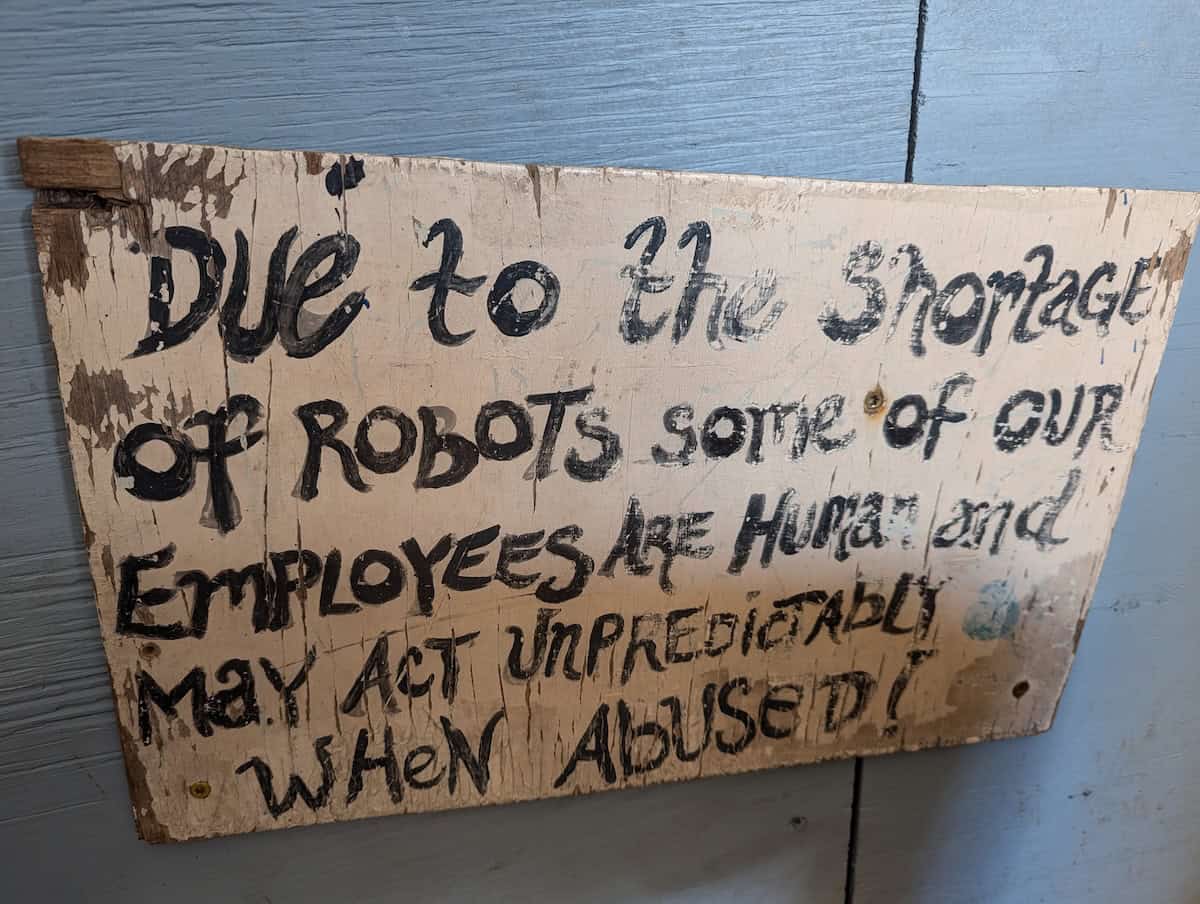 DUe to the ShortaGE
Of ROBOTS some of OUR
EMPLOYEES ARE Human and
MaY ACT UnPREDICTABLY
WHeN AbUSED!